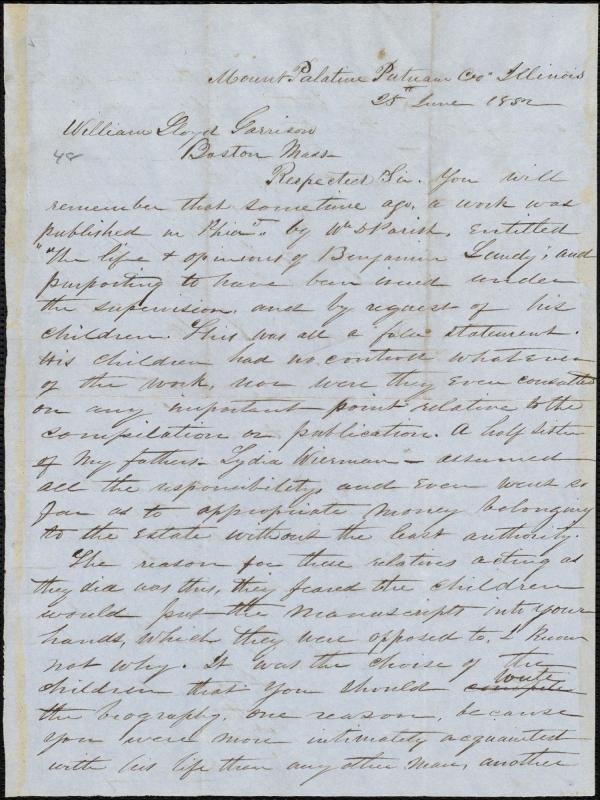 Mount Palatine Putnam Co Illinois
28th June 1852
William Lloyd Garrison
48
Boston Mass
Respected Sir. You will
remember that sometime ago, a work was
published in Phia. by Wm D Parish, entitled
"The life & opinions of Benjamin Lundy", and
purporting to have been issued under
the supervision, and by request of his
children. This was all a false statement.
His children had no controll whatever
of the work, nor were they even consulted
on any important point relative to the
compilation or publication. A half sister
of my fathers - Lydia Wierman - assumed
all the responsibility, and even went so
far as to appropriate money belonging
to the Estate without the least authority.
The reason for these relatives acting as
they did was this, they feared the children
would put the manuscripts into your
hands, which they were opposed to, I know
not why. It was the choise of the
children that you should compile write
the biography, one reason, because
you were more intimately acquainted
with his life than any other man, another